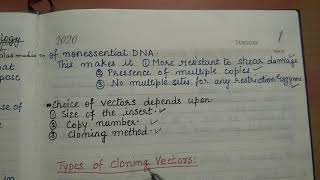 ology
2020
TUESDAY
1
of nonessential DNA.
This makes it ① More resistant to shear damage
② Presence of multiple copies
③ No multiple sites for any restriction enzyme
• Choice of vectors depends upon-
① Size of the insert.
② Copy number.
③ Cloning method.
Types of Cloning Vectors:
that
pose
se of